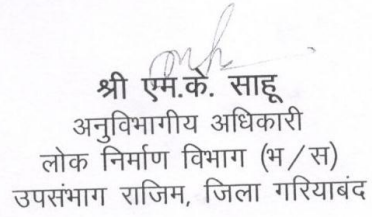 श्री एम.के. साहू
अनुविभागीय अधिकारी
लोक निर्माण विभाग (भ/स)
उपसंभाग राजिम, जिला गरियाबंद